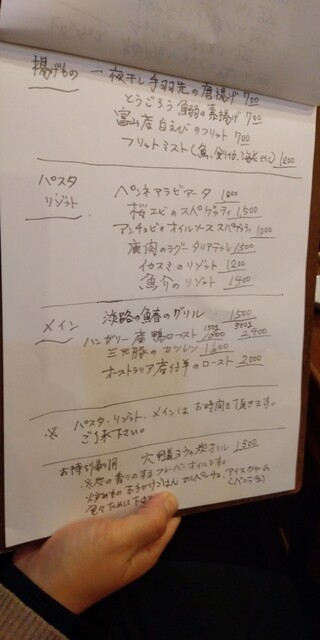 揚げもの 一夜干し手羽先の唐揚げ 700
とうごろう鰯の素揚げ 700
富山産白えびのフリット 700
フリットミスト(魚、
パスタ ペンネアラビアータ
リゾット 桜エビのスパゲッティ 1,500
アンチョビのオイルソーススパゲッティ 1000
鹿肉のラグー タリアテッレ 1500
イカスミのリゾット 1200
魚介のリゾット 1400
メイン 淡路の鰆のグリル 1500
ハンガリー産鴨ロースト 150g 300g 2,400
三元豚のカツレツ 1600
オーストラリア産仔羊のロースト 2000
※ パスタ・リゾット、メインはお時間を頂きます。
ご了承下さい。
お持ち帰り用 オイル 1300
香りのする オイルです。
カルパッチョ、アイスクリーム
(バニラ)